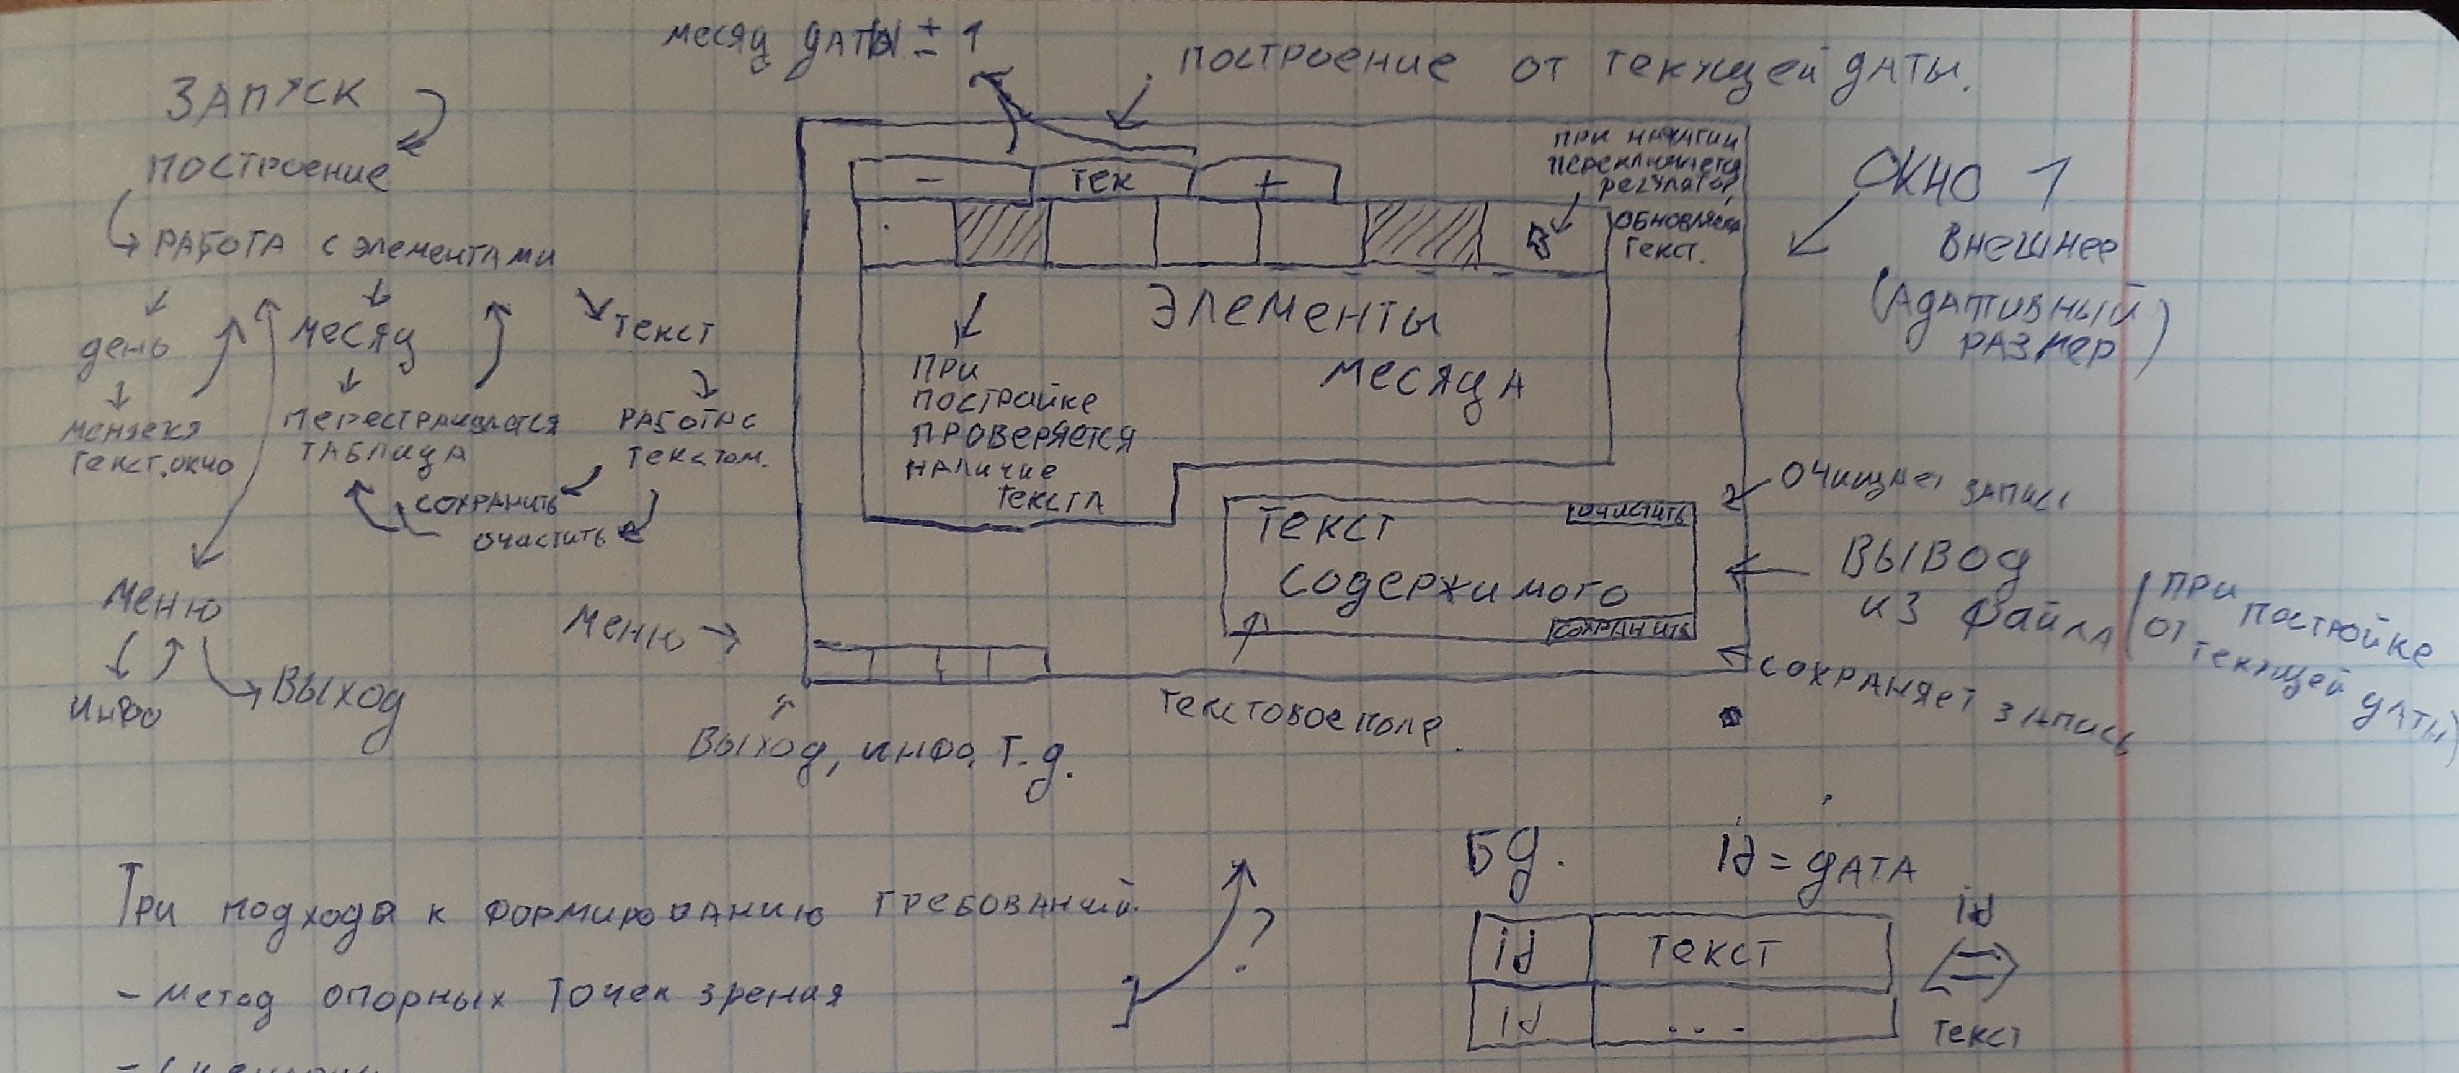 месяц даты ± 1
построение от текущей даты.
ЗАПУСК
построение
РАБОТА с элементами
день
месяц
текст
меняекя
текст. окно
перестраивается
ТАБЛИЦА
РАБОТА с
текстом.
СОХРАНИТЬ
очистить
меню
инфо
Выход
- тек +
при нажатии
переключается
регулятор,
ОБНОВЛЯется
текст.
ЭЛЕМЕНТЫ
месяцА
при
постройке
проверяется
наличие
текстА
ТЕКСТ
содержимого
очистить
сохранить
ОКНО 1
внешнее
(Адаптивный
размер)
очищает запись
Вывод
из файлА
(при постройке
от текущей дАты)
сохраняет запись
Меню
Текстовое поле.
Выход, инфо, т.д.
Три подхода к формированию требований.
- метод опорных точек зрения
?
БД. id = дАТА
id текст
id ...
id
текст